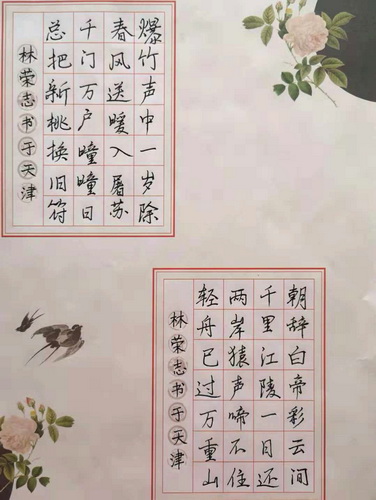 爆竹声中一岁除
春风送暖入屠苏
千门万户曈曈日
总把新桃换旧符
林荣志书于天津
朝辞白帝彩云间
千里江陵一日还
两岸猿声啼不住
轻舟已过万重山
林荣志书于天津